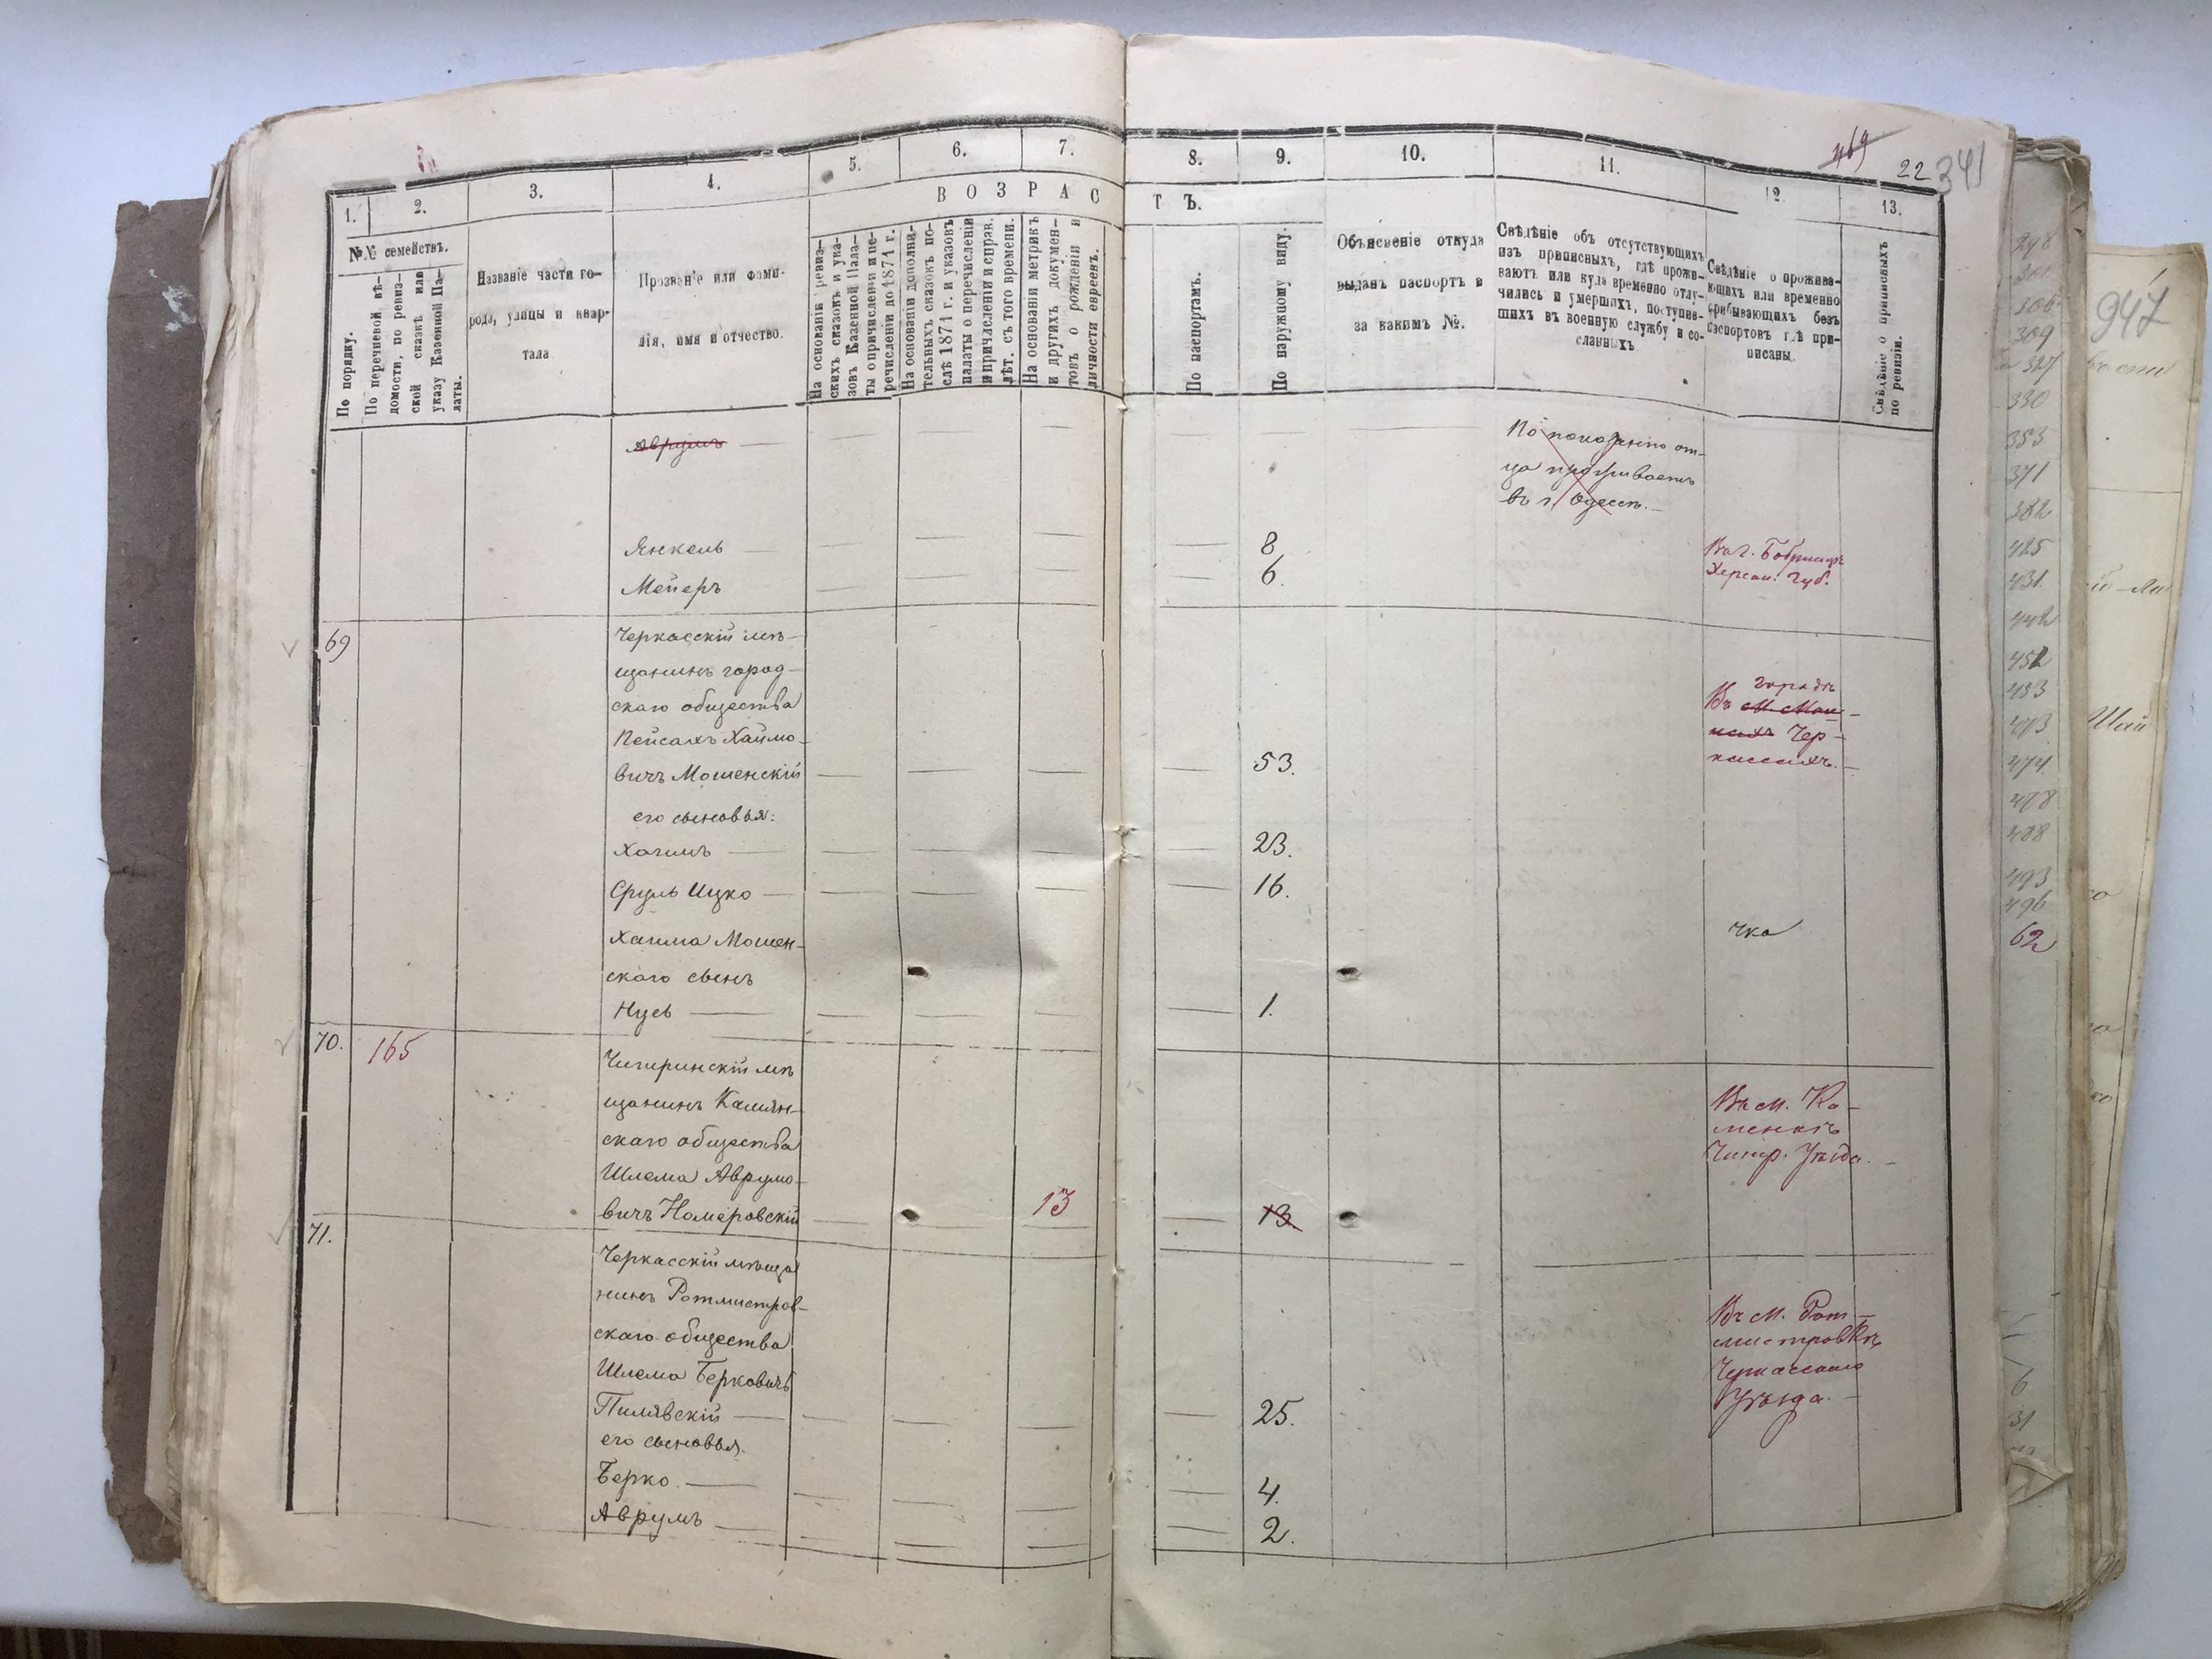 469
22
341
1.
2.
3.
4.
5.
6.
7.
8.
9.
10.
11.
12.
13.
ВОЗРАС
ТЪ.
№№ семействъ.
По порядку.
По перечневой вѣ-
домости, по ревиз-
ской сказкѣ или
указу Казенной Па-
латы.
Названіе части го-
рода, улицы и квар-
тала
Прозваніе или фами-
лія, имя и отчество.
На основаніи ревиз-
скихъ сказокъ и ука-
зовъ Казенной Пала-
ты о причисленіи и пе-
речисленіи до 1871 г.
На основаніи дополни-
тельныхъ сказокъ по-
слѣ 1871 г. и указовъ
палаты о перечисленіи
и причисленіи и справ.
лѣт. съ того времени.
На основаніи метрикъ
и другихъ докумен-
товъ о рожденіи и
личности евреевъ.
По паспортамъ.
По наружному виду.
Объясненіе откуда
выданъ паспортъ и
за какимъ №.
Свѣдѣніе объ отсутствующихъ
изъ приписныхъ, гдѣ прожи-
ваютъ или куда временно отлу-
чились и умершихъ, поступив-
шихъ въ военную службу и со-
сланныхъ
Свѣдѣніе о прожива-
ющихъ или временно
прибывающихъ безъ
паспортовъ гдѣ при-
писаны.
Свѣдѣніе о приписныхъ
по ревизіи.
Аврумъ
По показанію от-
ца проживаетъ
въ г. Одессѣ.
Янкель 8
Мейеръ 6.
Въ г. Бобринцѣ
Херсон. Губ.
69
Черкасскій мѣ-
щанинъ город-
скаго общества
Пейсахъ Хаимо-
вичъ Мошенскій 53.
городѣ
Въ м. Мош-
нахъ Чер-
кассахъ.
его сыновья:
Хаимъ 23.
Сруль Ицко 16.
Хаима Мошен-
скаго сынъ
Нусь 1.
70. 165
Чигиринскій мѣ
щанинъ Камян-
скаго общества
Шлема Аврумо-
вичъ Номеровскій 13 13.
Въ м. Ка-
менкѣ
Чигир. Уѣзда.
71.
Черкасскій мѣща
нинъ Ротмистров-
скаго общества
Шлема Берковичъ
Пилявскій 25.
его сыновья.
Берко 4.
Аврумъ 2.
Въ м. Рот-
мистровкѣ
Черкасскаго
Уѣзда.
298
306
309
327
330
353
371
382
425
431
442
452
453
473
474
478
488
493
496
62
6
31
947